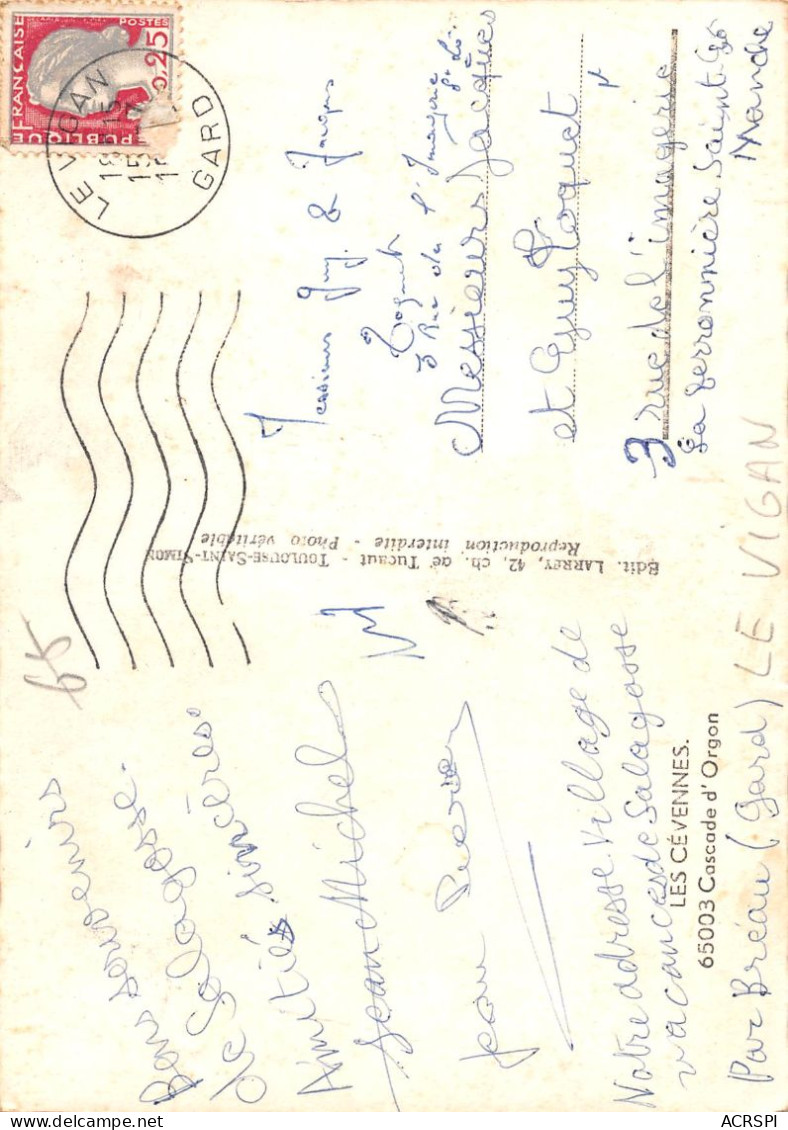 Bons souvenirs
de Salagosse.
Amitiés sincères
Jean Michel
Jean Pierre
Notre adresse. Village de
vacances de Salagosse
LES CÉVENNES.
65003 Cascade d'Orgon
Par Bréau (Gard) LE VIGAN
65
Edit. LARREY, 42, ch. de Tucaut - TOULOUSE-SAINT-SIMON
Reproduction interdite - Photo véritable
RÉPUBLIQUE FRANÇAISE
POSTES
0,25
LE VIGAN
GARD
Messieurs Guy & Jacques
Toquet
3 Rue de l'Imagerie St Lô
Messieurs Jacques
et Guy Toquet
3 rue de l'imagerie
La ferronnière Saint-Lô
Manche
ACRSPI